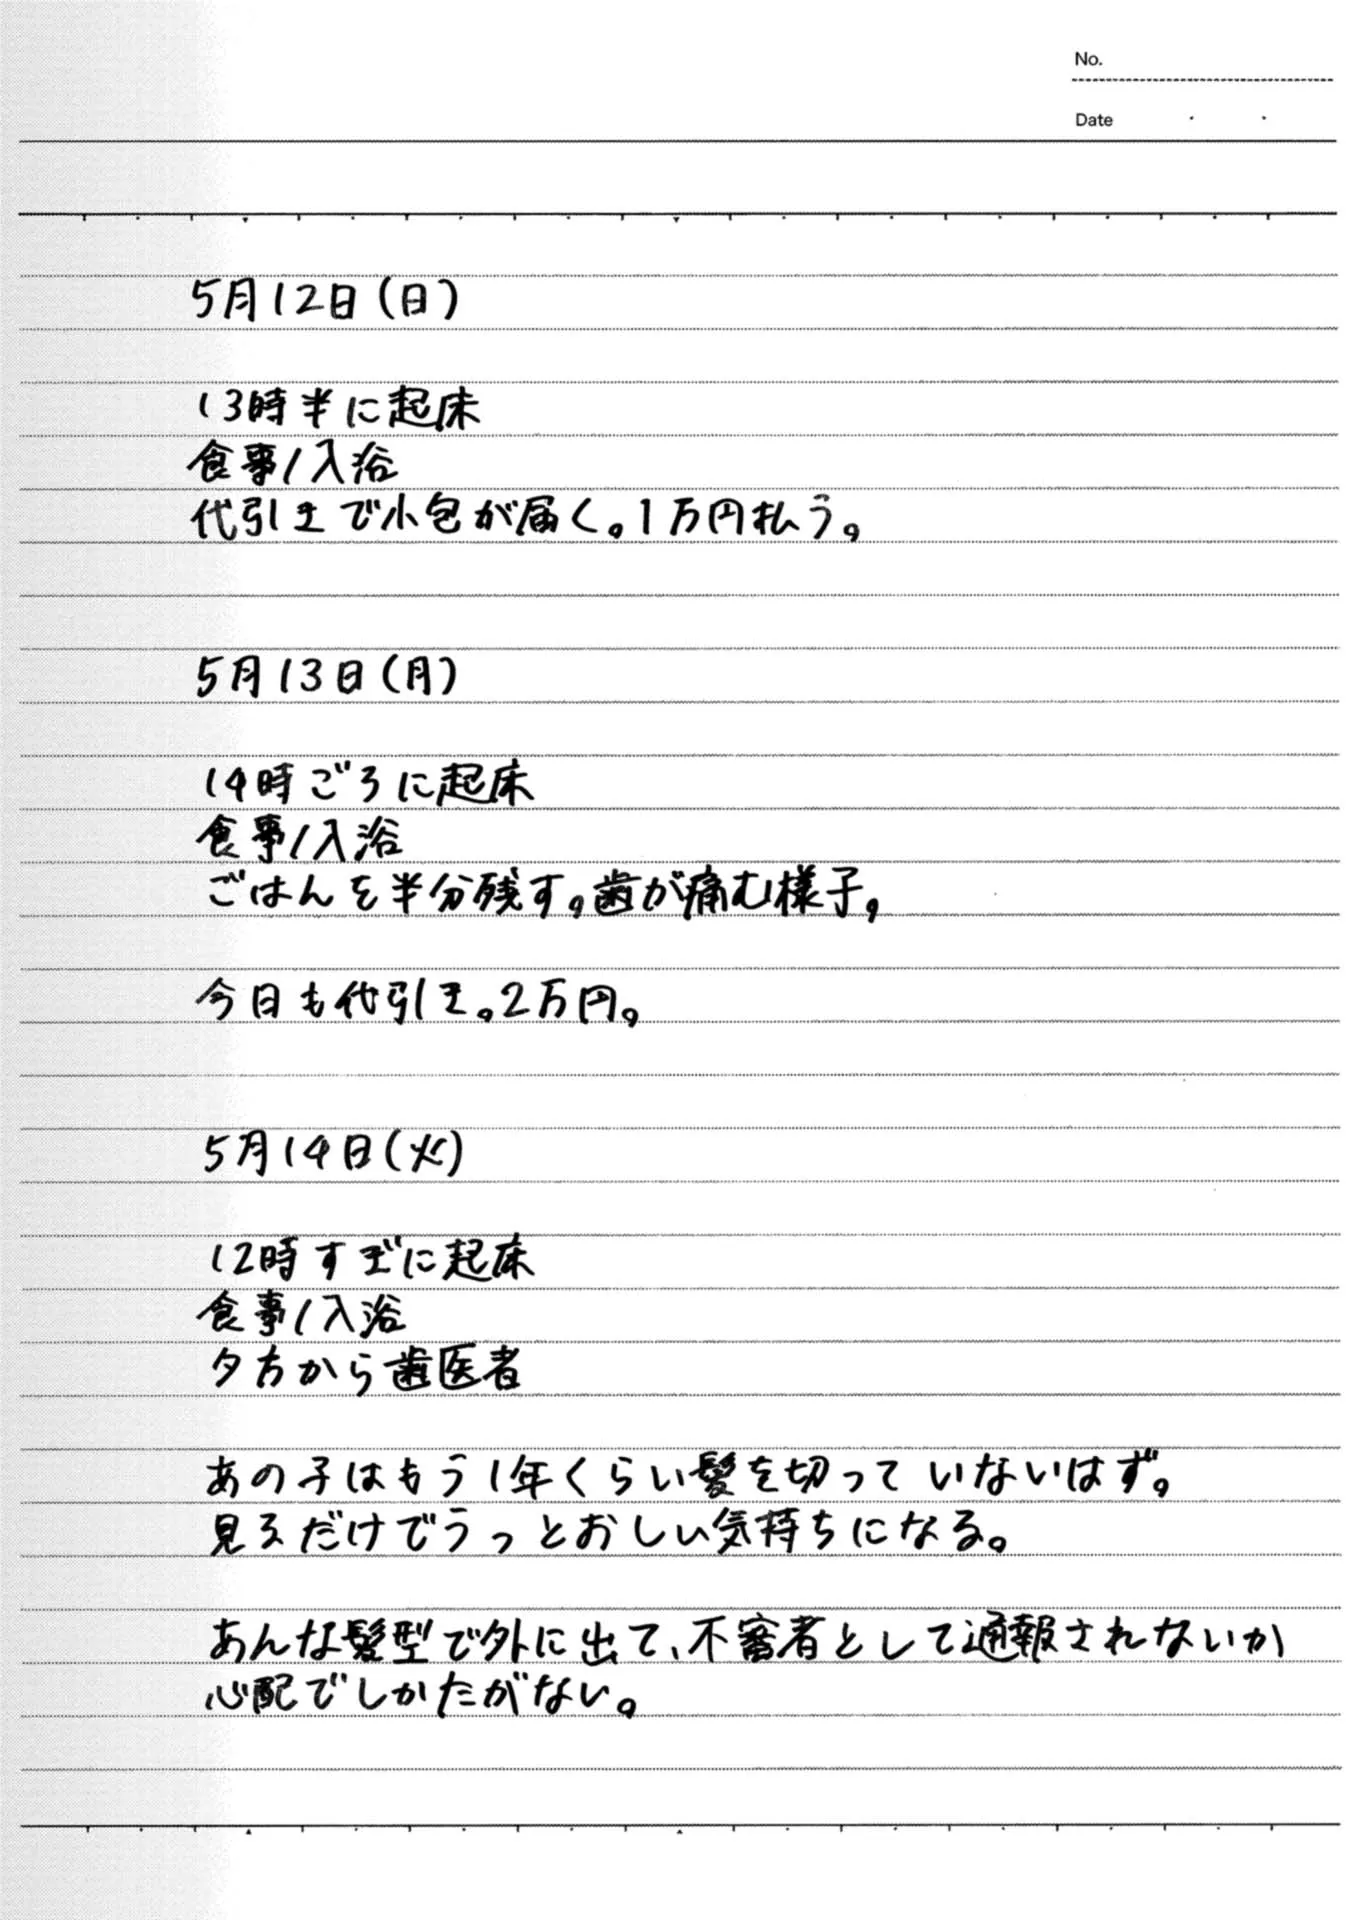 No.
Date
5月12日(日)
13時半に起床
食事/入浴
代引きで小包が届く。1万円払う。
5月13日(月)
14時ごろに起床
食事/入浴
ごはんを半分残す。歯が痛む様子。
今日も代引き。2万円。
5月14日(火)
12時すぎに起床
食事/入浴
夕方から歯医者
あの子はもう1年くらい髪を切っていないはず。
見るだけでうっとおしい気持ちになる。
あんな髪型で外に出て、不審者として通報されないか
心配でしかたがない。